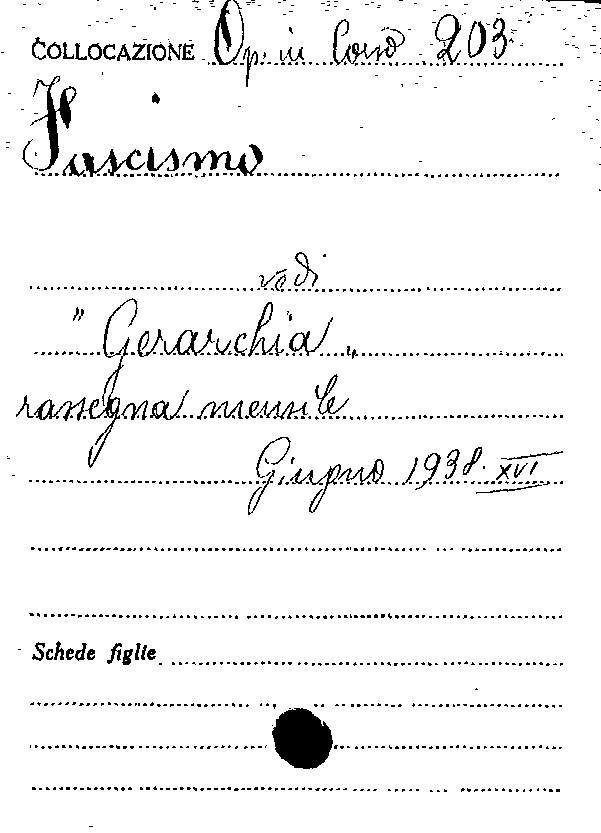 COLLOCAZIONE Op. in Corso 203
Fascismo
vedi
"Gerarchia"
rassegna mensile
Giugno 1938. XVI
Schede figlie